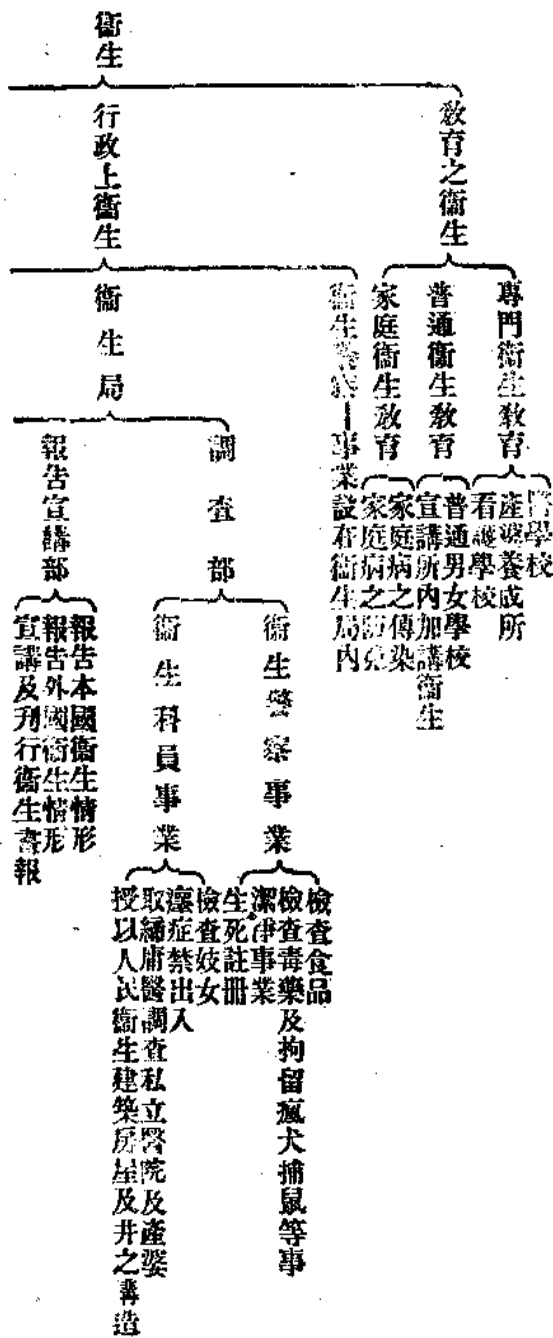 衞生
教育之衞生
專門衞生教育
醫學校
產婆養成所
看護學校
普通衞生教育
普通男女學校
宣講所內加講衞生
家庭衞生教育
家庭病之傳染
家庭病之
行政上衞生
衞生警察——事業設在衞生局內
衞生局
調查部
衞生警察事業
檢查食品
檢查毒藥及拘留瘋犬捕鼠等事
潔淨事業
生死註冊
衞生科員事業
檢查妓女
癘症禁出入
取締庸醫調查私立醫院及產婆
授以人民衞生建築房屋及井之構造
報告宣講部
報告本國衞生情形
報告外國衞生情形
宣講及刋行衞生書報